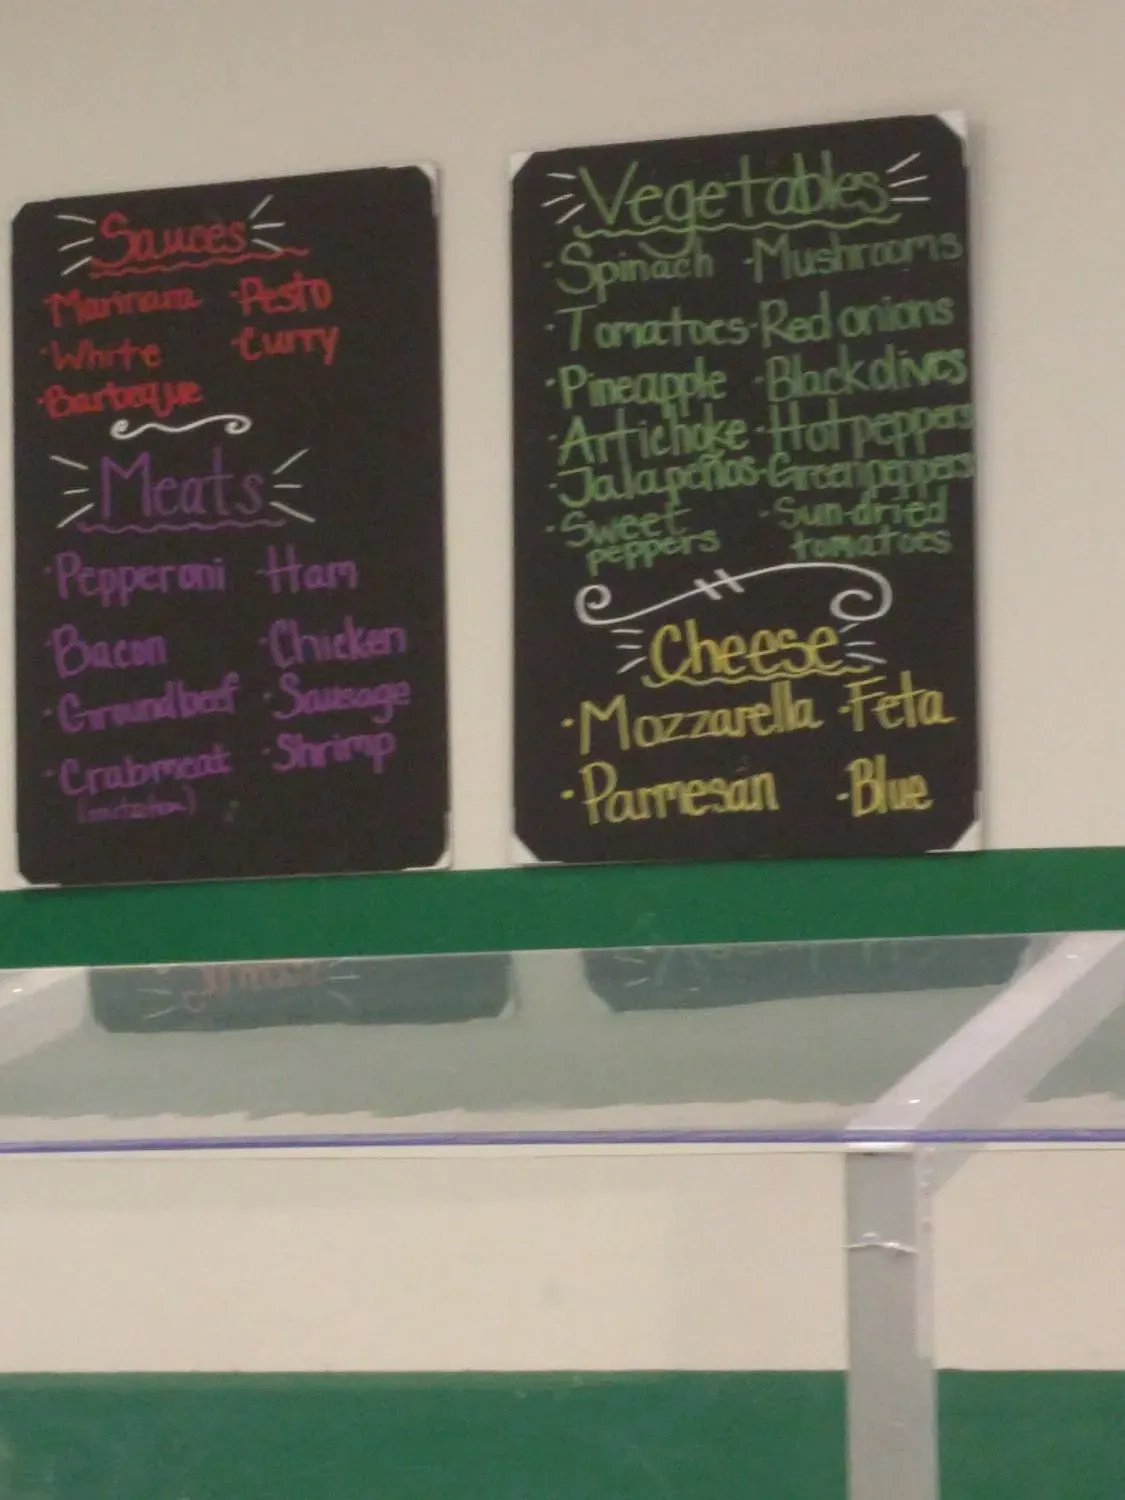 Sauces
·Marinara ·Pesto
·White ·Curry
·Barbeque
Meats
·Pepperoni ·Ham
·Bacon ·Chicken
·Groundbeef ·Sausage
·Crabmeat ·Shrimp
(imitation)
Vegetables
·Spinach ·Mushrooms
·Tomatoes ·Red onions
·Pineapple ·Black olives
·Artichoke ·Hot peppers
·Jalapeños ·Green peppers
·Sweet peppers ·Sun-dried tomatoes
Cheese
·Mozzarella ·Feta
·Parmesan ·Blue